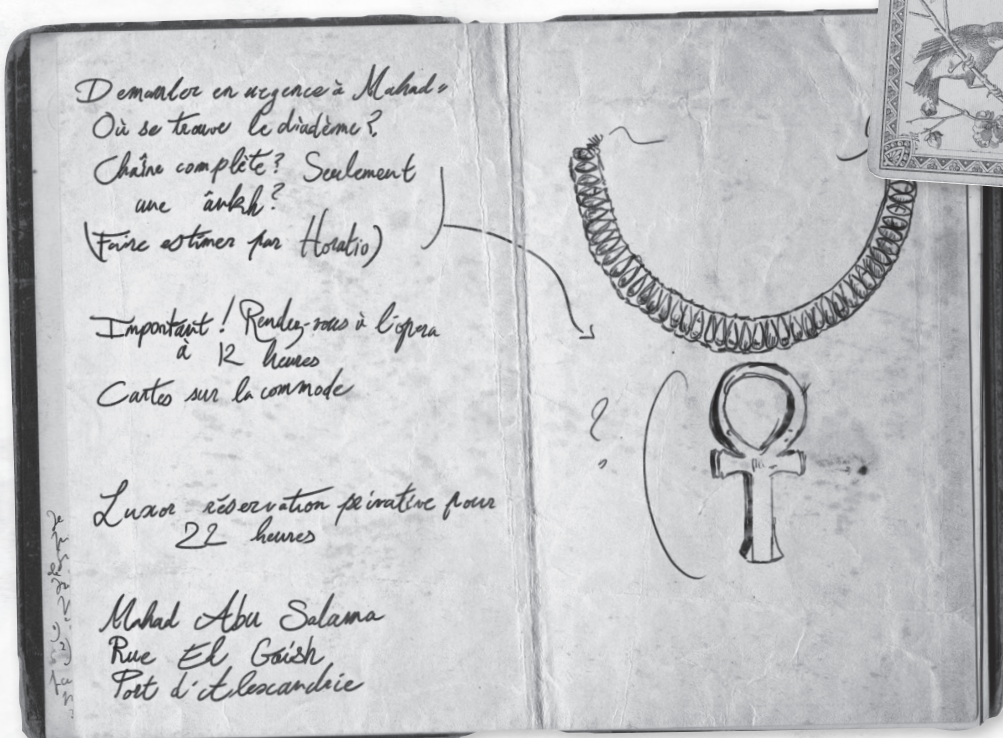 Demander en urgence à Mahad :
Où se trouve le diadème ?
Chaîne complète ? Seulement
une ânkh ?
(Faire estimer par Horatio)
Important ! Rendez-vous à l'opera
à 12 heures
Cartes sur la commode
Luxor réservation privative pour
22 heures
Mahad Abu Salama
Rue El Gaish
Port d'Alexandrie
?